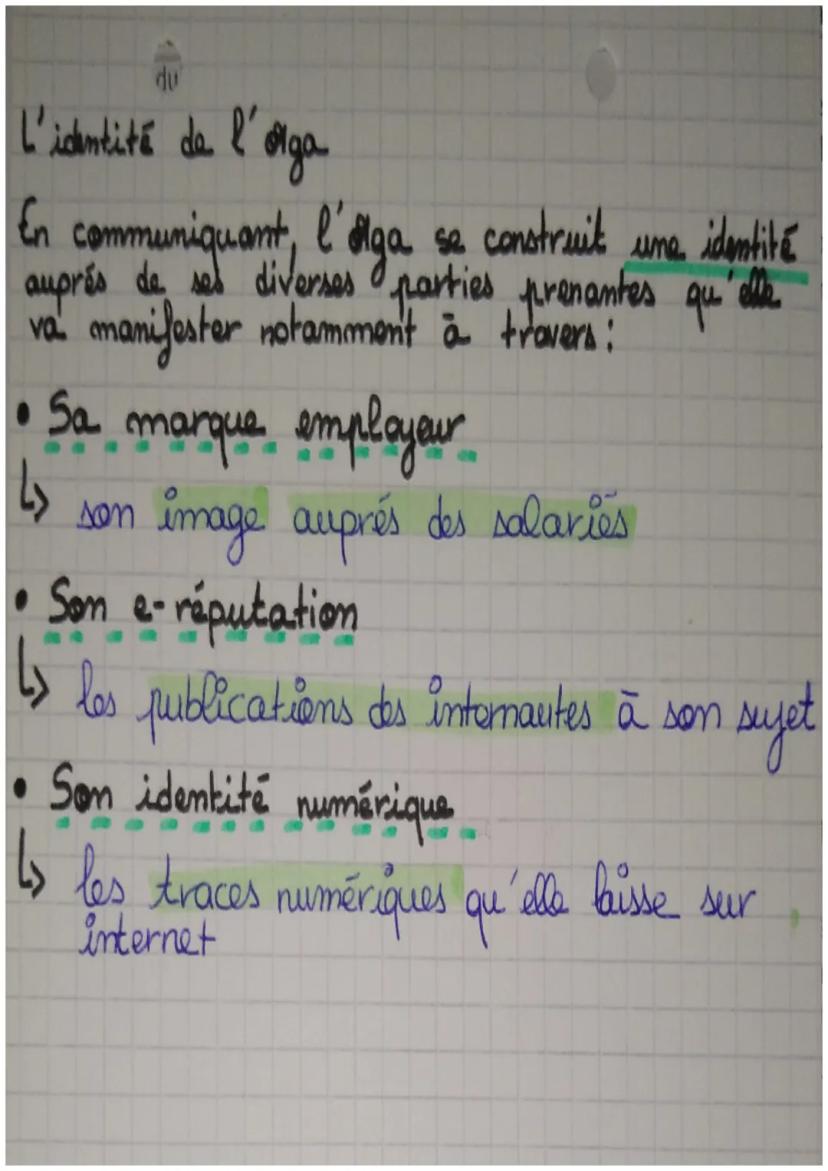 du
L'identité de l'orga
En communiquant, l'orga se construit une identité
auprés de ses diverses parties prenantes qu'elle
va manifester notamment à travers :
• Sa marque employeur
↳ son image auprés des salariés
• Son e-réputation
↳ les publications des internautes à son sujet
• Son identité numérique
↳ les traces numériques qu'elle laisse sur
internet